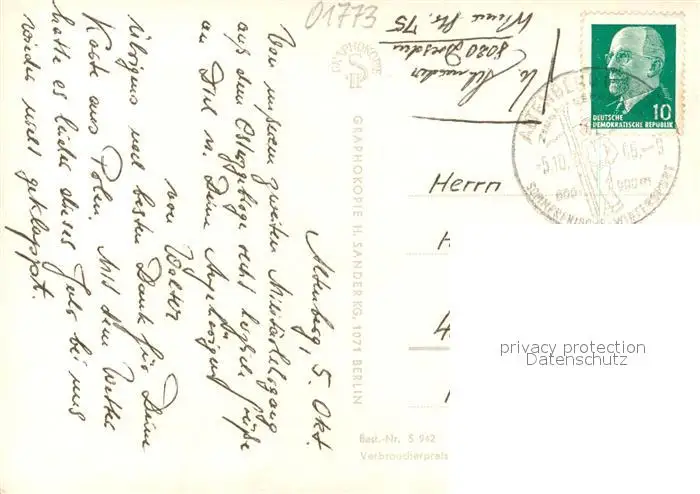 01773
W. Schneider
8020 Dresden
Wiener Str. 75
DEUTSCHE
DEMOKRATISCHE REPUBLIK
10
-5.10.
600
900 m
Herrn
H
4
Altenberg, 5. Okt.
Von unserem zweiten Militärlehrgang
aus dem Osterzgebirge recht herzliche Grüße
an Dich u. Deine Angehörigen
von Walter
Übrigens noch besten Dank für Deine
Karte aus Polen. Mit dem Wetter
hatte es leider dieses Jahr bei uns
wieder nicht geklappt.
GRAPHOKOPIE
GRAPHOKOPIE H. SANDER KG, 1071 BERLIN
Best.-Nr. S 942
Verbraucherpreis
privacy protection
Datenschutz